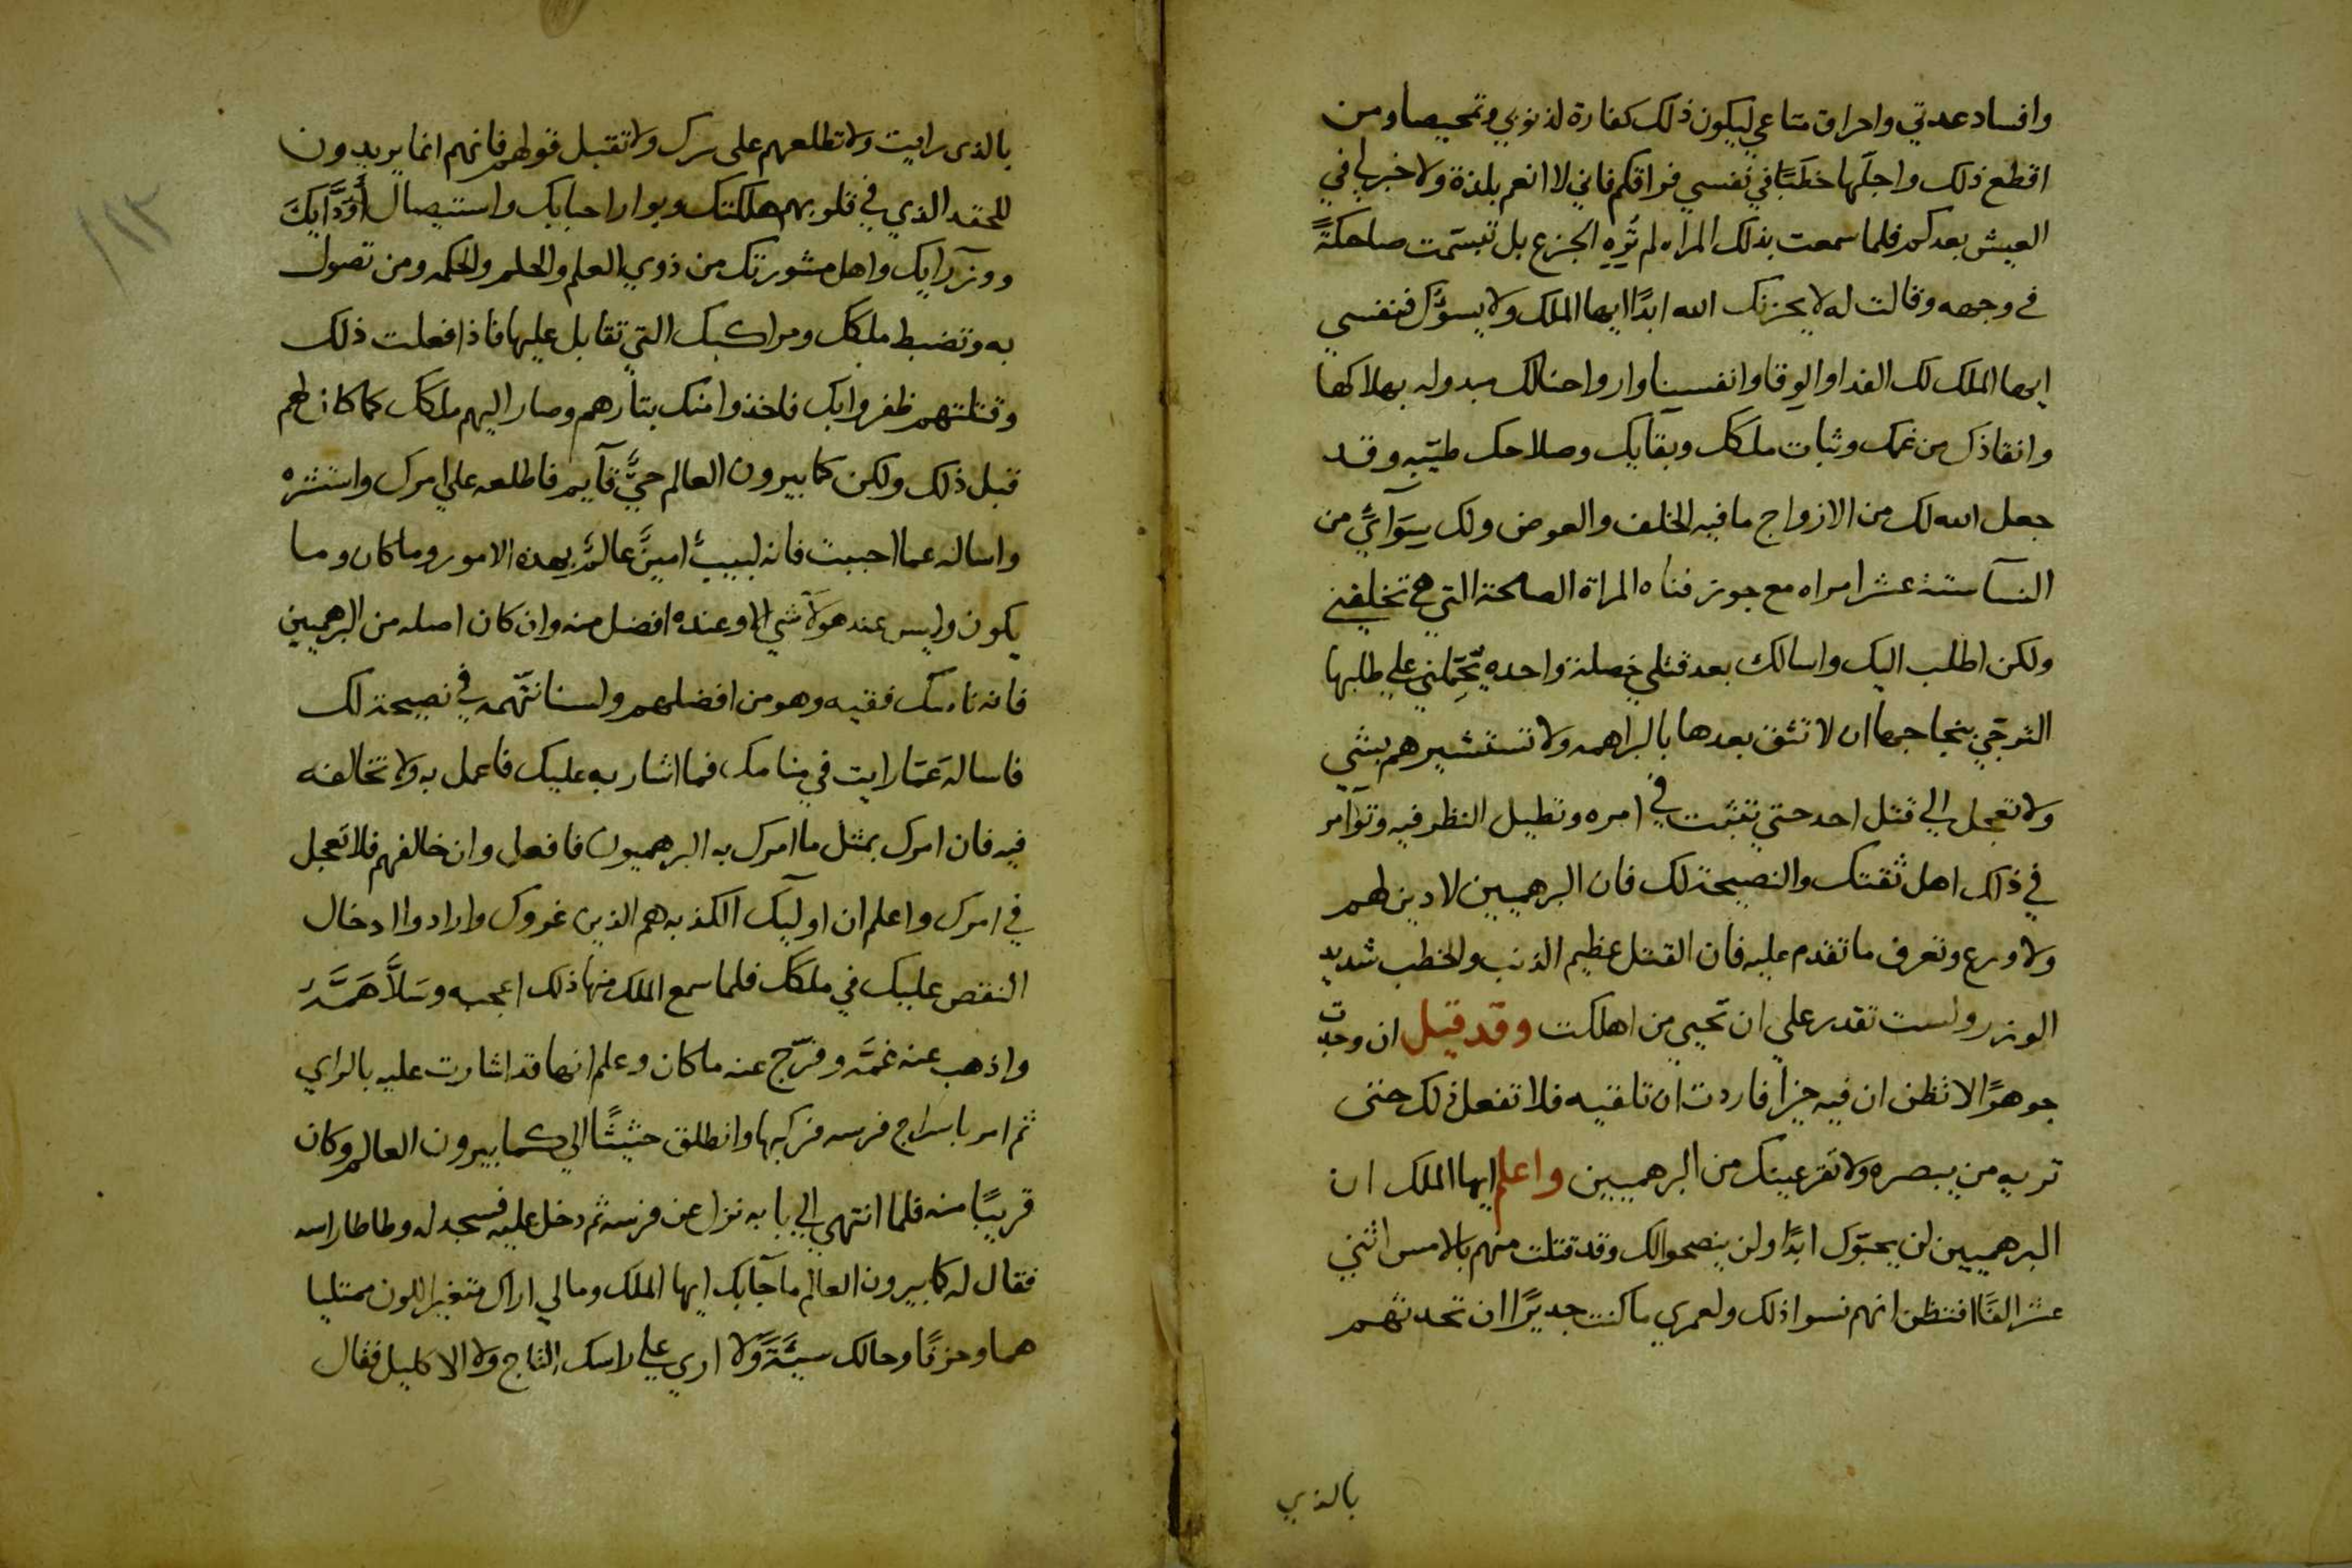 وافساد عدتي واحراق متاعي ليكون ذلك كفارة لذنوبي وتمحيصا ومن
اقطع ذلك واجلها خطبًا في نفسي فراقكم فاني لا انعم بلذة ولا خير لي في
العيش بعدكم فلما سمعت بذلك المراه لم تُرِه الجزع بل تبسّمت ضاحكةً
في وجهه وقالت له لا يحزنك الله ابدًا ايها الملك ولا يسؤك فنفسي
ايها الملك لك الفدا والوقا وانفسنا وارواحنا لك مبدوله بهلاكها
وانقاذك من غمك وثبات ملكك وبقايك وصلاحك طيّبه وقد
جعل الله لك من الازواج ما فيه الخلف والعوض ولك سِوَآئي من
النسآ ستة عشر امراه مع جوزفناه المراة الصالحة التي هي تخلفني
ولكن اطلب اليك واسالك بعد قتلي خصلة واحده يَحْمِلني علي طلبها
الترجّي بنجاحها ان لا تثق بعدها بالبراهمه ولا تستشيرهم بشي
ولا تعجل الي قتل احد حتي تتثبت في امره وتطيل النظر فيه وتؤآمر
في ذلك اهل ثقتك والنصيحة لك فان البرهميين لا دين لهم
ولا ورع وتعرف ما تقدم عليه فان القتل عظيم الذنب والخطب شديد
الوزر ولست تقدر علي ان تحيي من اهلكت وقد قيل ان وجدت
جوهرًا لا تظن ان فيه خيرًا فاردت ان تلقيه فلا تفعل ذلك حتى
تريه من يبصره ولا تقر عينك من البرهميين واعلم ايها الملك ان
البرهميين لن يحبّوك ابدًا ولن ينصحوا لك وقد قتلت منهم بالامس اثني
عشر الفًا افتظن انهم نسوا ذلك ولعمري ما كنت جديرًا ان تحدثهم
بالذي
بالذى رايت ولا تطلعهم على سرك ولا تقبل قولهم فانهم انما يريدون
للحقد الذي في قلوبهم هلكتك وبوار احبابك واستيصال أَوِدَّآيِكَ
ووزرآيك واهل مشورتك من ذوي العلم والحلم والحكمه ومن تصول
به وتضبط ملكك ومراكبك التي تقابل عليها فاذا فعلت ذلك
وقتلتهم ظفروا بك فاخذوا منك بتارهم وصار اليهم ملكك كما كان لهم
قبل ذلك ولكن كنابيرون العالم حيٌّ قآيم فاطلعه علي امرك واستشره
واساله عما احببت فانه لبيبٌ امينٌ عالمٌ بهذه الامور وما كان وما
يكون وليس عند هولآ شي الا وعنده افضل منه وان كان اصله من البرهميين
فانه ناسك فقيه وهو من افضلهم ولسنا نتّهمه في نصيحة لك
فاساله عمّا رايت في منامك فما اشار به عليك فاعمل به ولا تخالفه
فيه فان امرك بمثل ما امرك به البرهميون فافعل وان خالفهم فلا تعجل
في امرك واعلم ان اوليك الكذبه هم الذين غروك وارادوا ادخال
النقص عليك في ملكك فلما سمع الملك منها ذلك اعجبه وسَلاَّ هَمَّهُ
واذهب عنه غمّه وفرّج عنه ما كان وعلم انها قد اشارت عليه بالراي
ثم امر باسراج فرسه فركبها وانطلق حثيثًا الي كنابيرون العالم وكان
قريبًا منه فلما انتهي الي بابه نزل عن فرسه ثم دخل عليه فسجد له وطاطا راسه
فقال له كنابيرون العالم ما جآبك ايها الملك ومالي اراك متغير اللون ممتليا
هما وحزنًا وحالك سيّئةً ولا اري علي راسك التاج ولا الاكليل فقال
١١٢